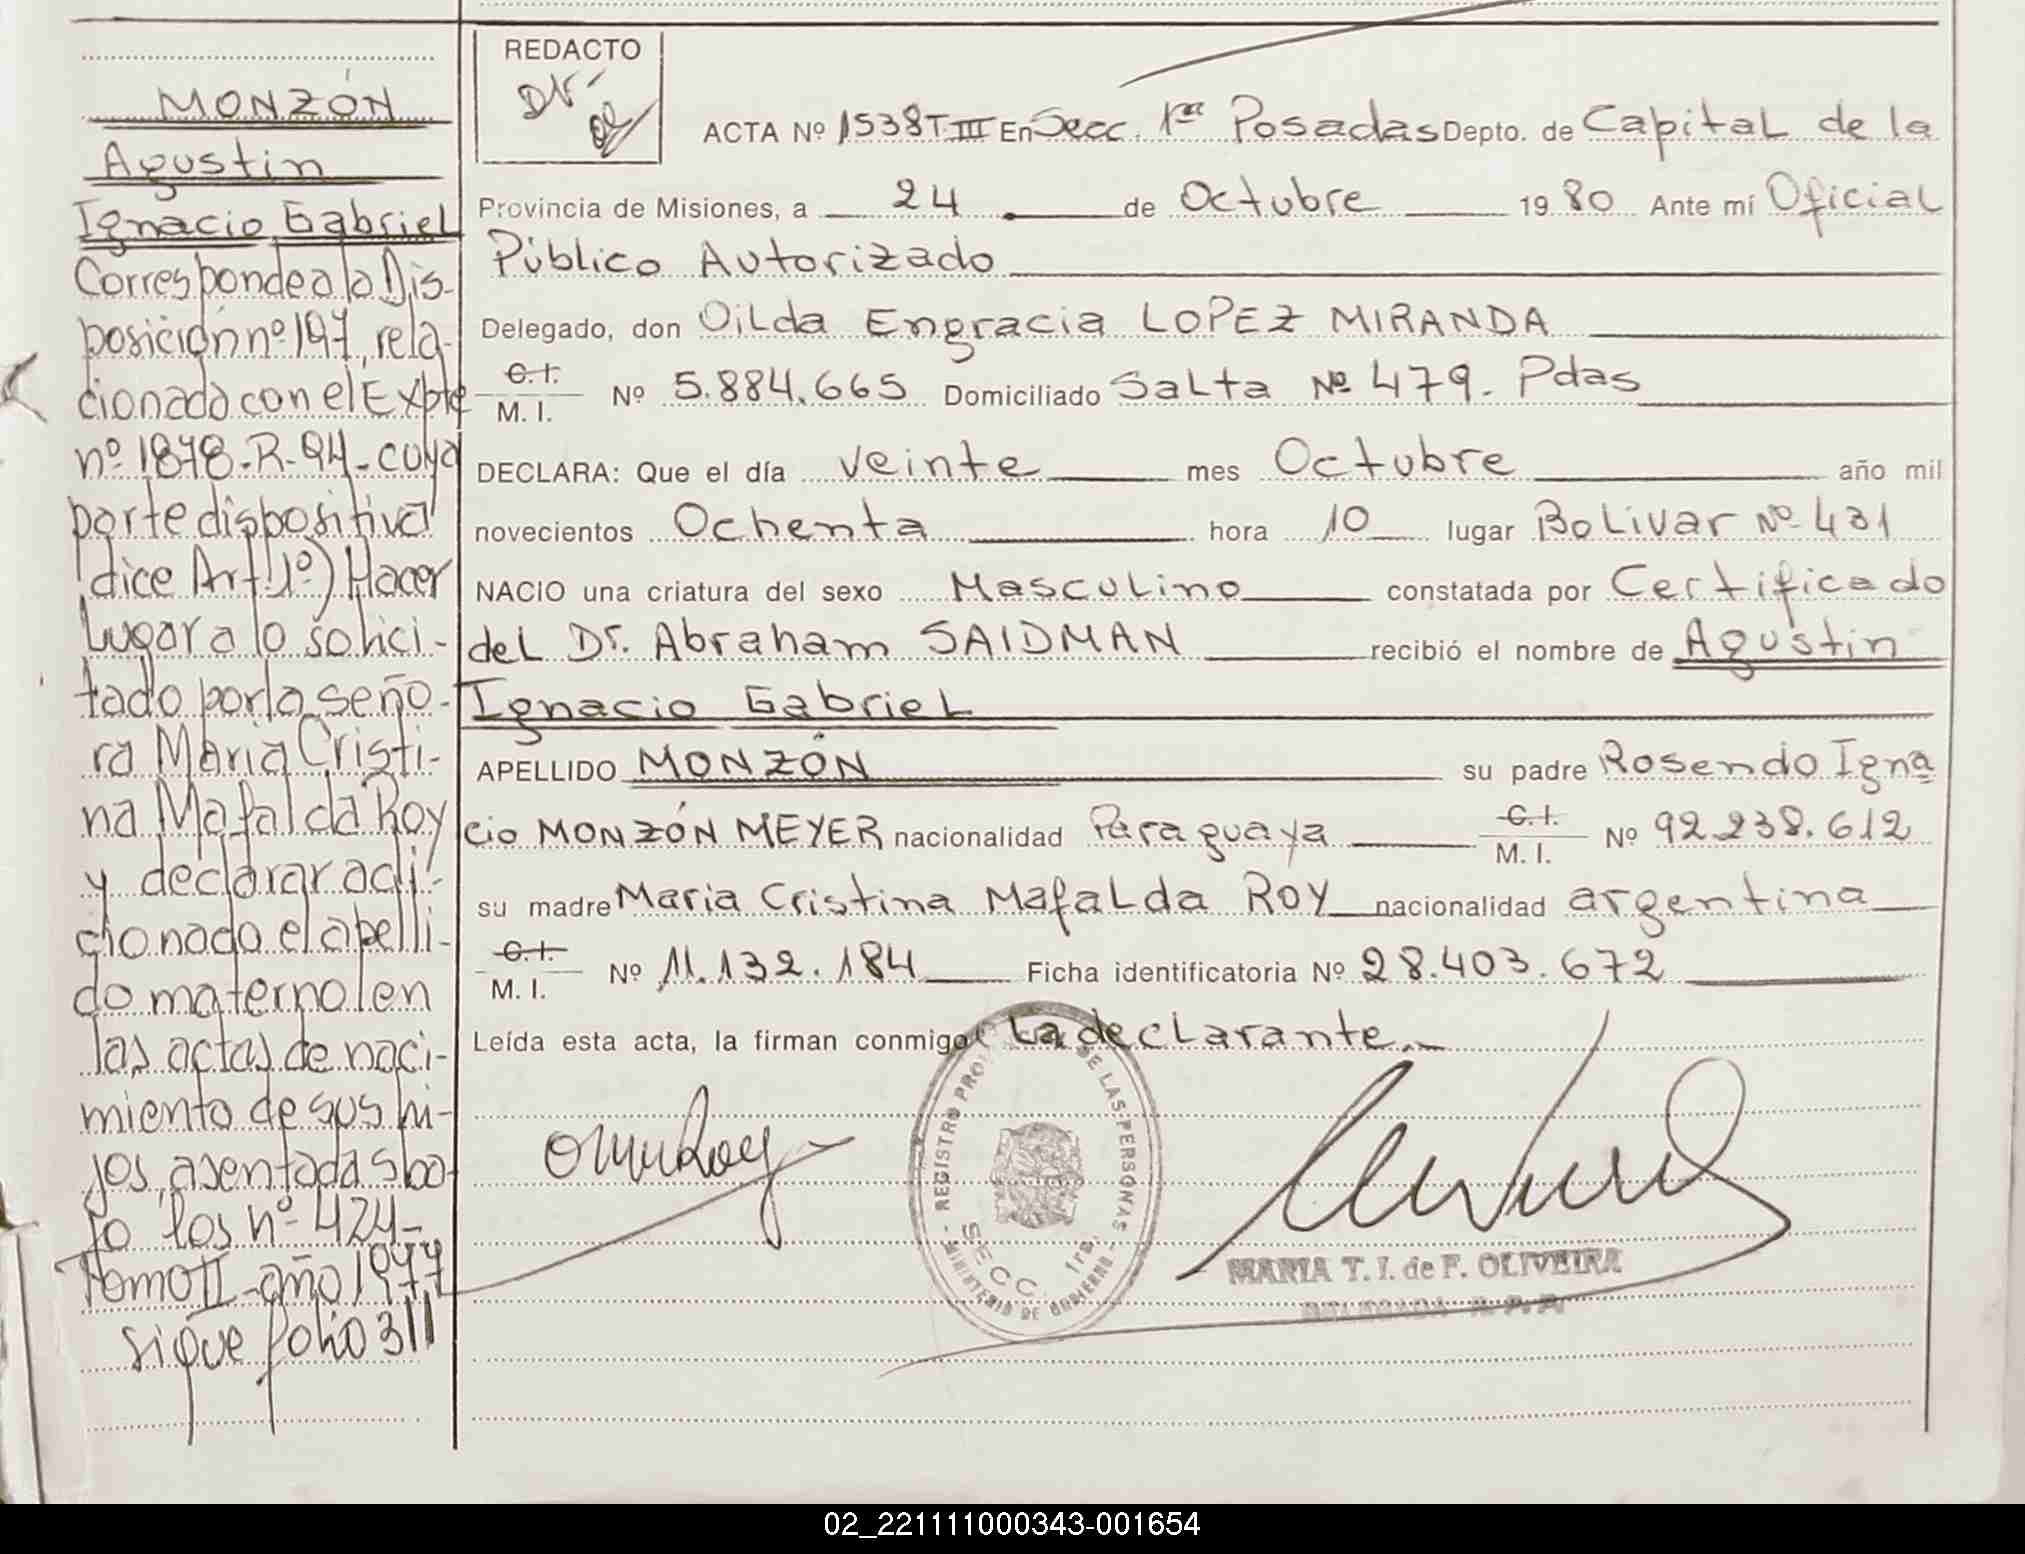 MONZÓN
Agustin
Ignacio Gabriel
Corresponde a la Dis-
posición nº 197, rela-
cionada con el Expte
nº 1878-R-94- cuya
parte dispositiva
dice Art. 1º) Hacer
Lugar a lo solici-
tado por la seño-
ra Maria Cristi-
na Mafalda Roy
y declarar adi-
cionado el apelli-
do materno en
las actas de naci-
miento de sus hi-
jos, asentadas ba-
jo los nº 424-
Tomo II-año 1977
sigue folio 311
REDACTO
ACTA Nº 1538 T. III En Secc. 1ra Posadas Depto. de Capital de la
Provincia de Misiones, a 24 de Octubre 1980 Ante mí Oficial
Público Autorizado
Delegado, don Oilda Engracia LOPEZ MIRANDA
C.I.
M. I. Nº 5.884.665 Domiciliado Salta Nº 479. Pdas
DECLARA: Que el día veinte mes Octubre año mil
novecientos Ochenta hora 10 lugar Bolivar Nº 431
NACIO una criatura del sexo Masculino constatada por Certificado
del Dr. Abraham SAIDMAN recibió el nombre de Agustin
Ignacio Gabriel
APELLIDO MONZÓN su padre Rosendo Igna
cio MONZÓN MEYER nacionalidad Paraguaya C.I.
M. I. Nº 92.238.612
su madre Maria Cristina Mafalda ROY nacionalidad argentina
C.I.
M. I. Nº 11.132.184 Ficha identificatoria Nº 28.403.672
Leída esta acta, la firman conmigo La declarante.
REGISTRO DE LAS PERSONAS
MINISTERIO DE GOBIERNO
SECC. 1ra.
MARIA T. I. de F. OLIVEIRA
02_221111000343-001654